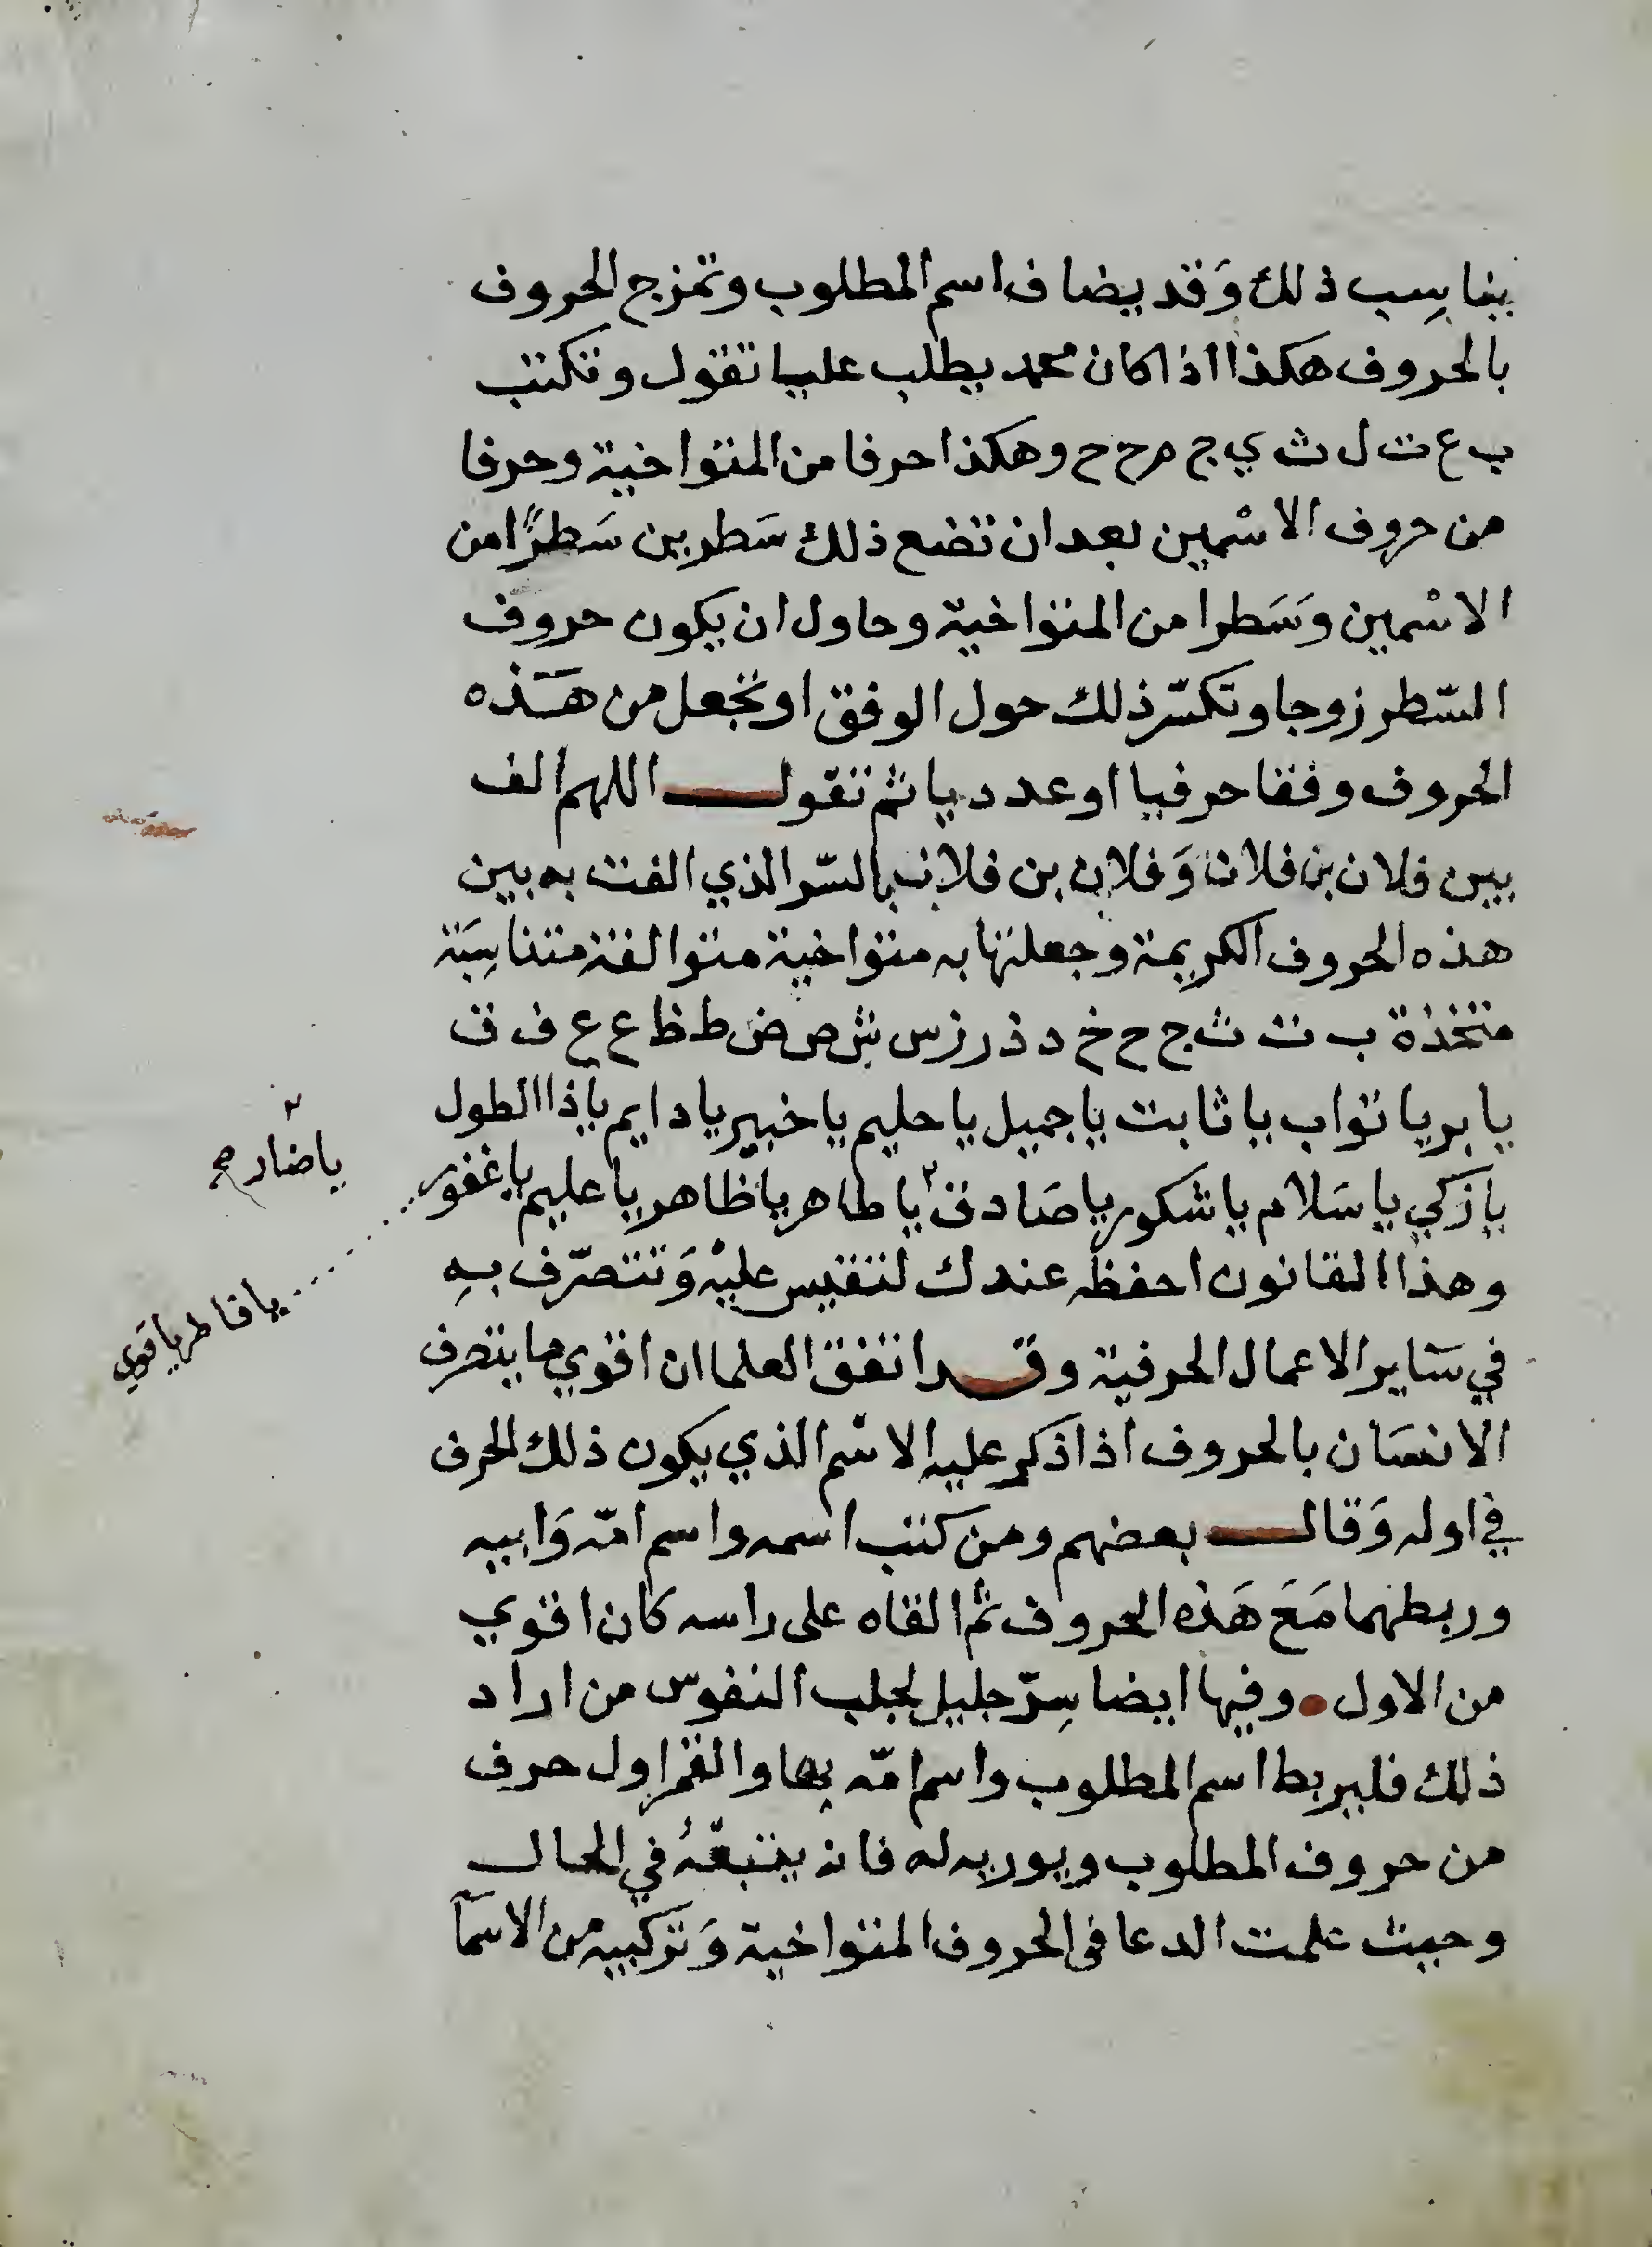 يناسب ذلك وَقد يضاف اسم المطلوب وتمزج الحروف
بالحروف هكذا اذا كان محمد يطلب عليا تقول وتكتب
ب ع ت ل ث ي ج م ح ح وهكذا حرفا من المتواخية وحرفا
من حروف الاسْمين بعد ان تضع ذلك سَطرين سَطرًا من
الاسْمين وسَطرا من المتواخية وحاول ان يكون حروف
السّطر زوجا وتكسّر ذلك حول الوفق او تجعل من هَذه
الحروف وفقا حرفيا او عدديا ثم تقول اللهم الف
بين فلان بن فلان وَفلان بن فلان بالسّر الذي الفت به بين
هذه الحروف الكريمة وجعلتها به متواخية متوالفة متناسِبَة
متخذة ب ت ث ج ح خ د ذ ر ز س ش ص ض ط ظ ع غ ف ق
يا بر يا تواب يا ثابت يا جميل يا حليم يا خبير يا دايم يا ذا الطول
يا زكي يا سَلام يا شكور يا صَادق ٢ يا طاهر يا ظاهر يا عليم يا غفور
٢
يا ضار صح
يا فاطر يا قوي
وهذا القانون احفظه عندك لتقيس عليْه وَتتصرّف بهِ
في سَاير الاعمال الحرفية وقد اتفق العلما ان اقوي ما يتصرف
الانسَان بالحروف اذا ذكر عليه الاسْم الذي يكون ذلك الحرف
في اوله وَقال بعضهم ومن كتب اسمه واسم امّه وَابيه
وربطهما مَعَ هَذه الحروف ثم القاه على راسه كان اقوي
من الاول وفيها ايضا سِرّ جليل لجلب النفوس من اراد
ذلك فليربط اسم المطلوب واسم امّه بها والقم اول حرف
من حروف المطلوب ويوريه له فانه يتبعَهُ في الحال
وحيث علمت الدعا فى الحروف المتواخية وَتركيبه من الاسمآ